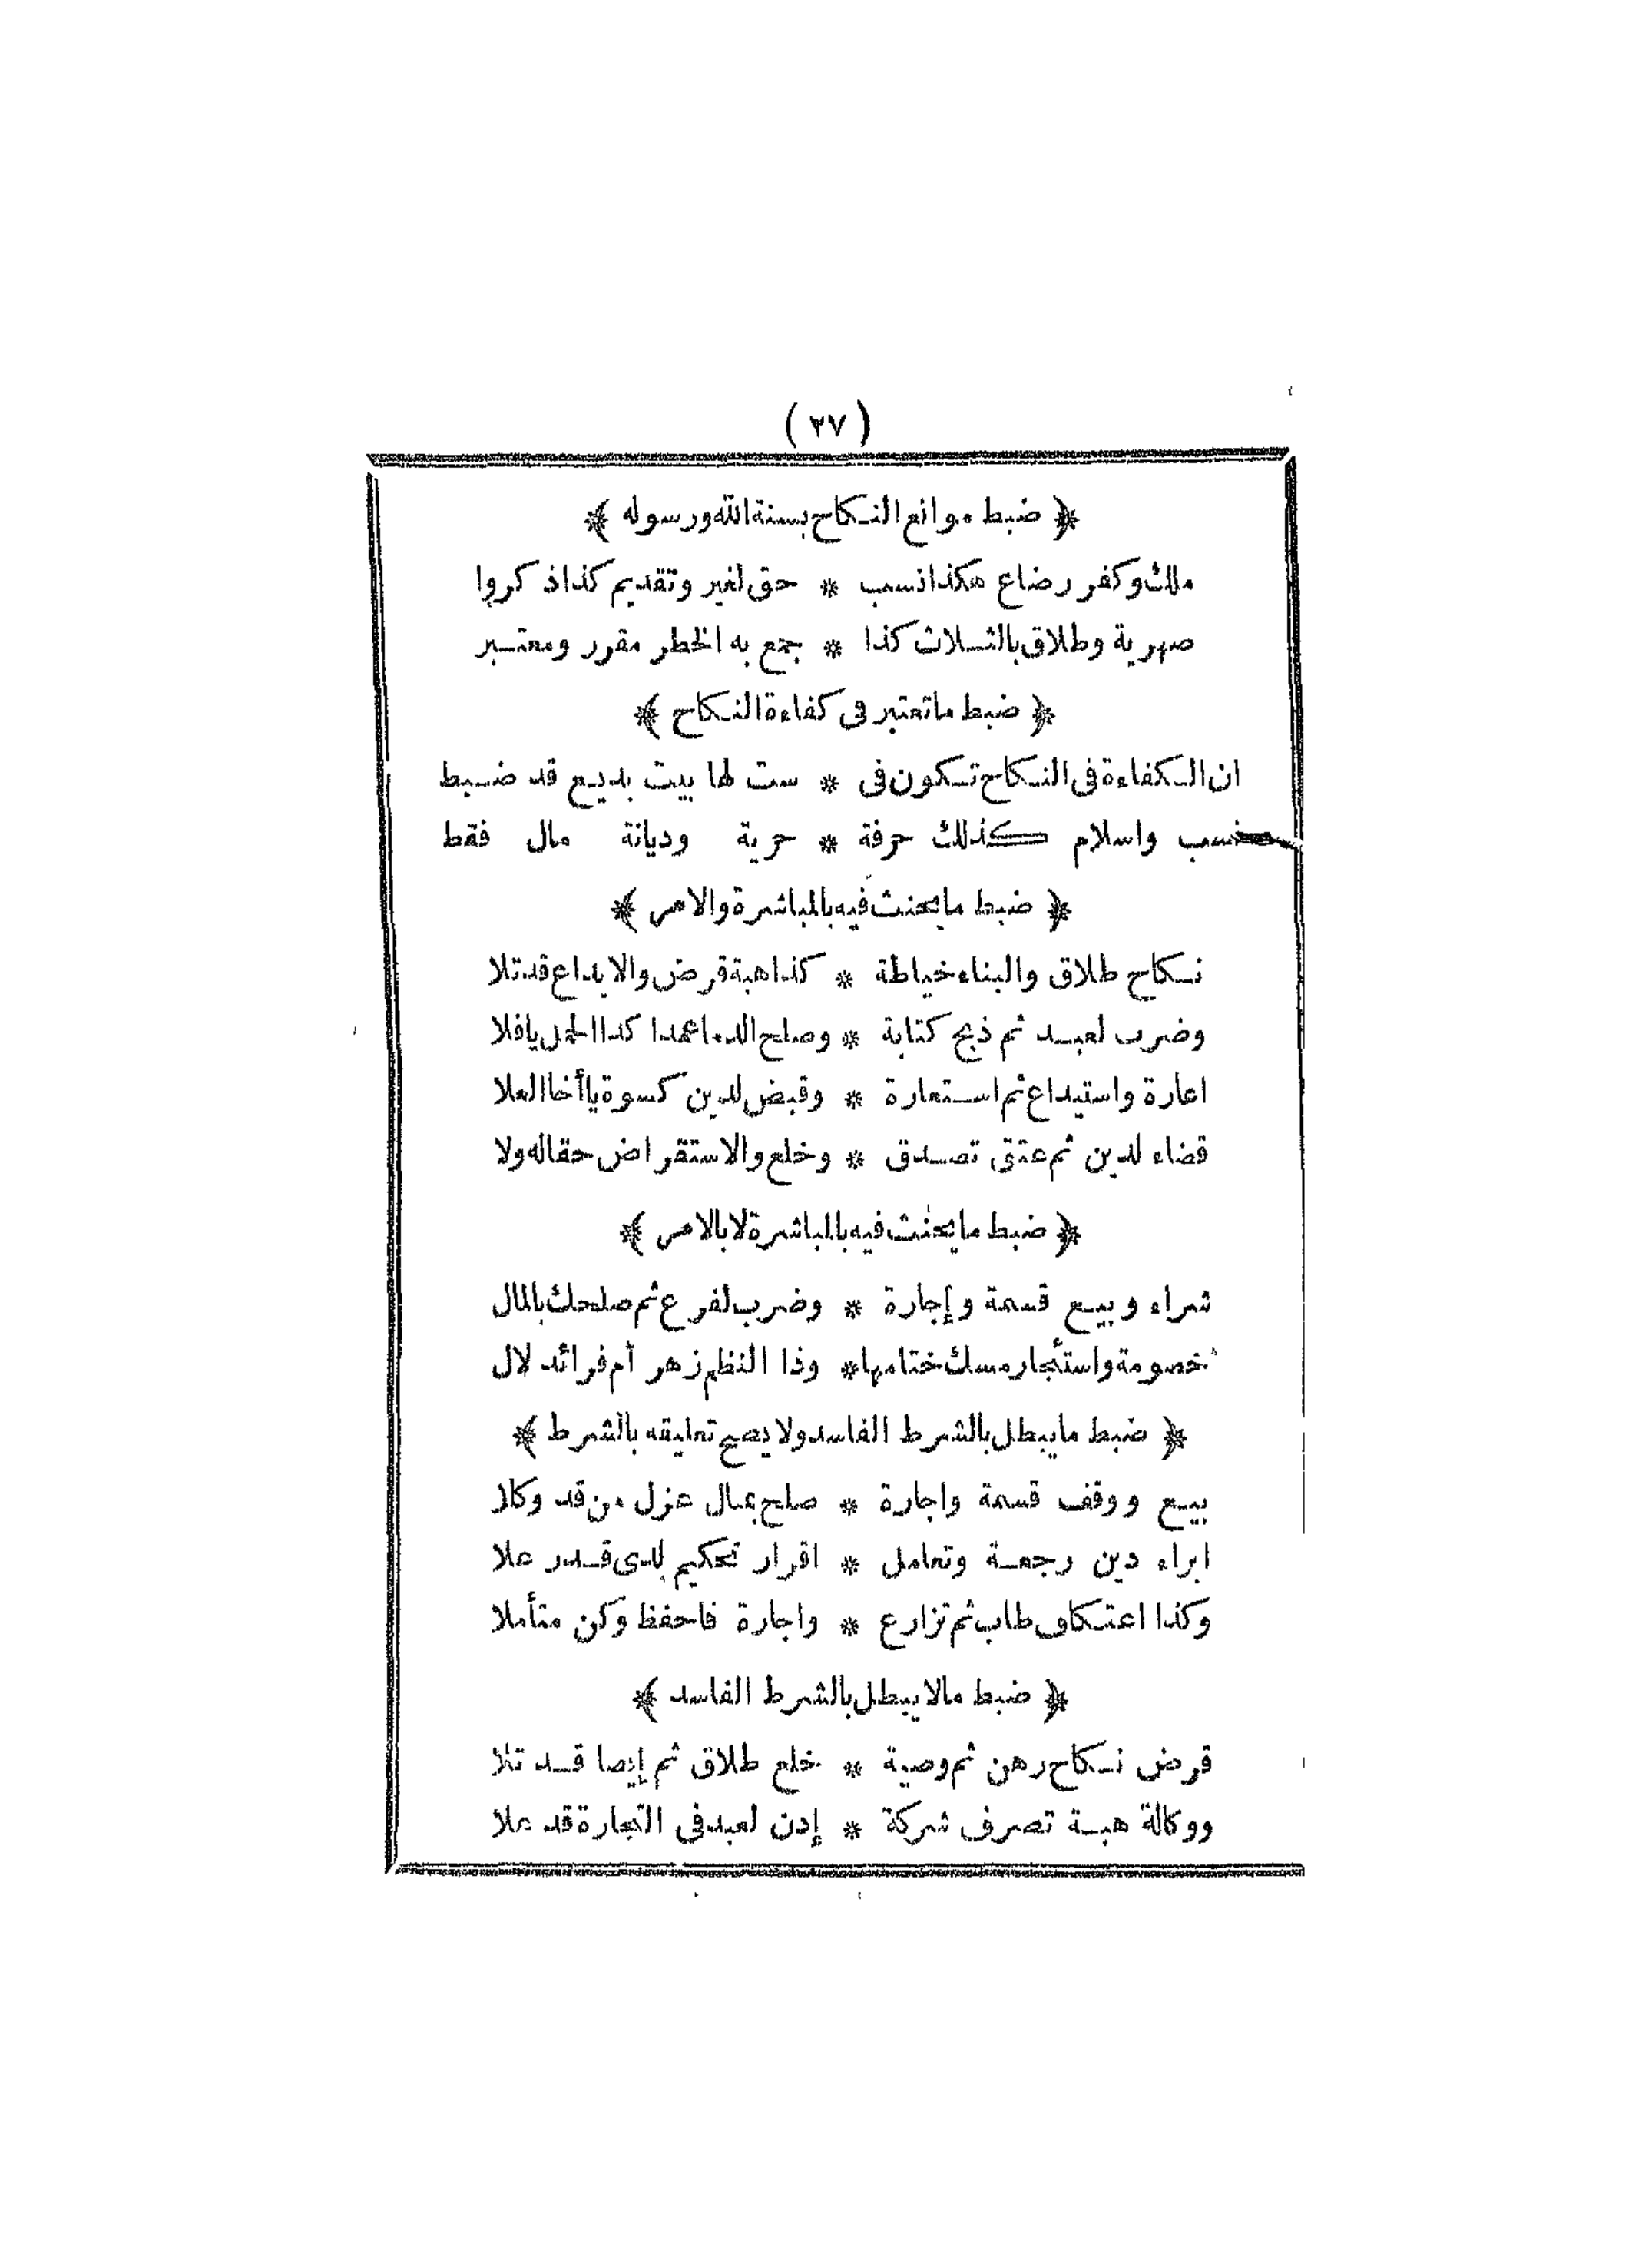 ( ٢٧ )
﴿ ضبط موانع النكاح بسنة الله ورسوله ﴾
ملك وكفر رضاع هكذا نسب * حق لغير وتقديم كذا ذكروا
صهرية وطلاق بالثلاث كذا * جمع به الخطر مقرر ومعتبر
﴿ ضبط ما تعتبر فى كفاءة النكاح ﴾
ان الكفاءة فى النكاح تكون فى * ست لها بيت بديع قد ضبط
نسب واسلام كذلك حرفة * حرية وديانة مال فقط
﴿ ضبط ما يحنث فيه بالمباشرة والامر ﴾
نكاح طلاق والبناء خياطة * كذا هبة قرض والايداع قد تلا
وضرب لعبد ثم ذبح كتابة * وصلح الدم اعمدا كذا الحمل يا فلا
اعارة واستيداع ثم استعارة * وقبض لدين كسوة يا أخا العلا
قضاء لدين ثم عتق تصدق * وخلع والاستقراض حقا له ولا
﴿ ضبط ما يحنث فيه بالمباشرة لا بالامر ﴾
شراء وبيع قسمة وإجارة * وضرب لفرع ثم صلحك بالمال
خصومة واستئجار مسك ختامها * وذا النظم زهر أم فرائد لال
﴿ ضبط ما يبطل بالشرط الفاسد ولا يصح تعليقه بالشرط ﴾
بيع ووقف قسمة واجارة * صلح بمال عزل من قد وكلا
ابراء دين رجعة وتعامل * اقرار تحكيم لدى قدر علا
وكذا اعتكاف طاب ثم تزارع * واجارة فاحفظ وكن متأملا
﴿ ضبط مالا يبطل بالشرط الفاسد ﴾
قرض نكاح رهن ثم وصية * خلع طلاق ثم إيصا قد تلا
ووكالة هبة تصرف شركة * إذن لعبد فى التجارة قد علا